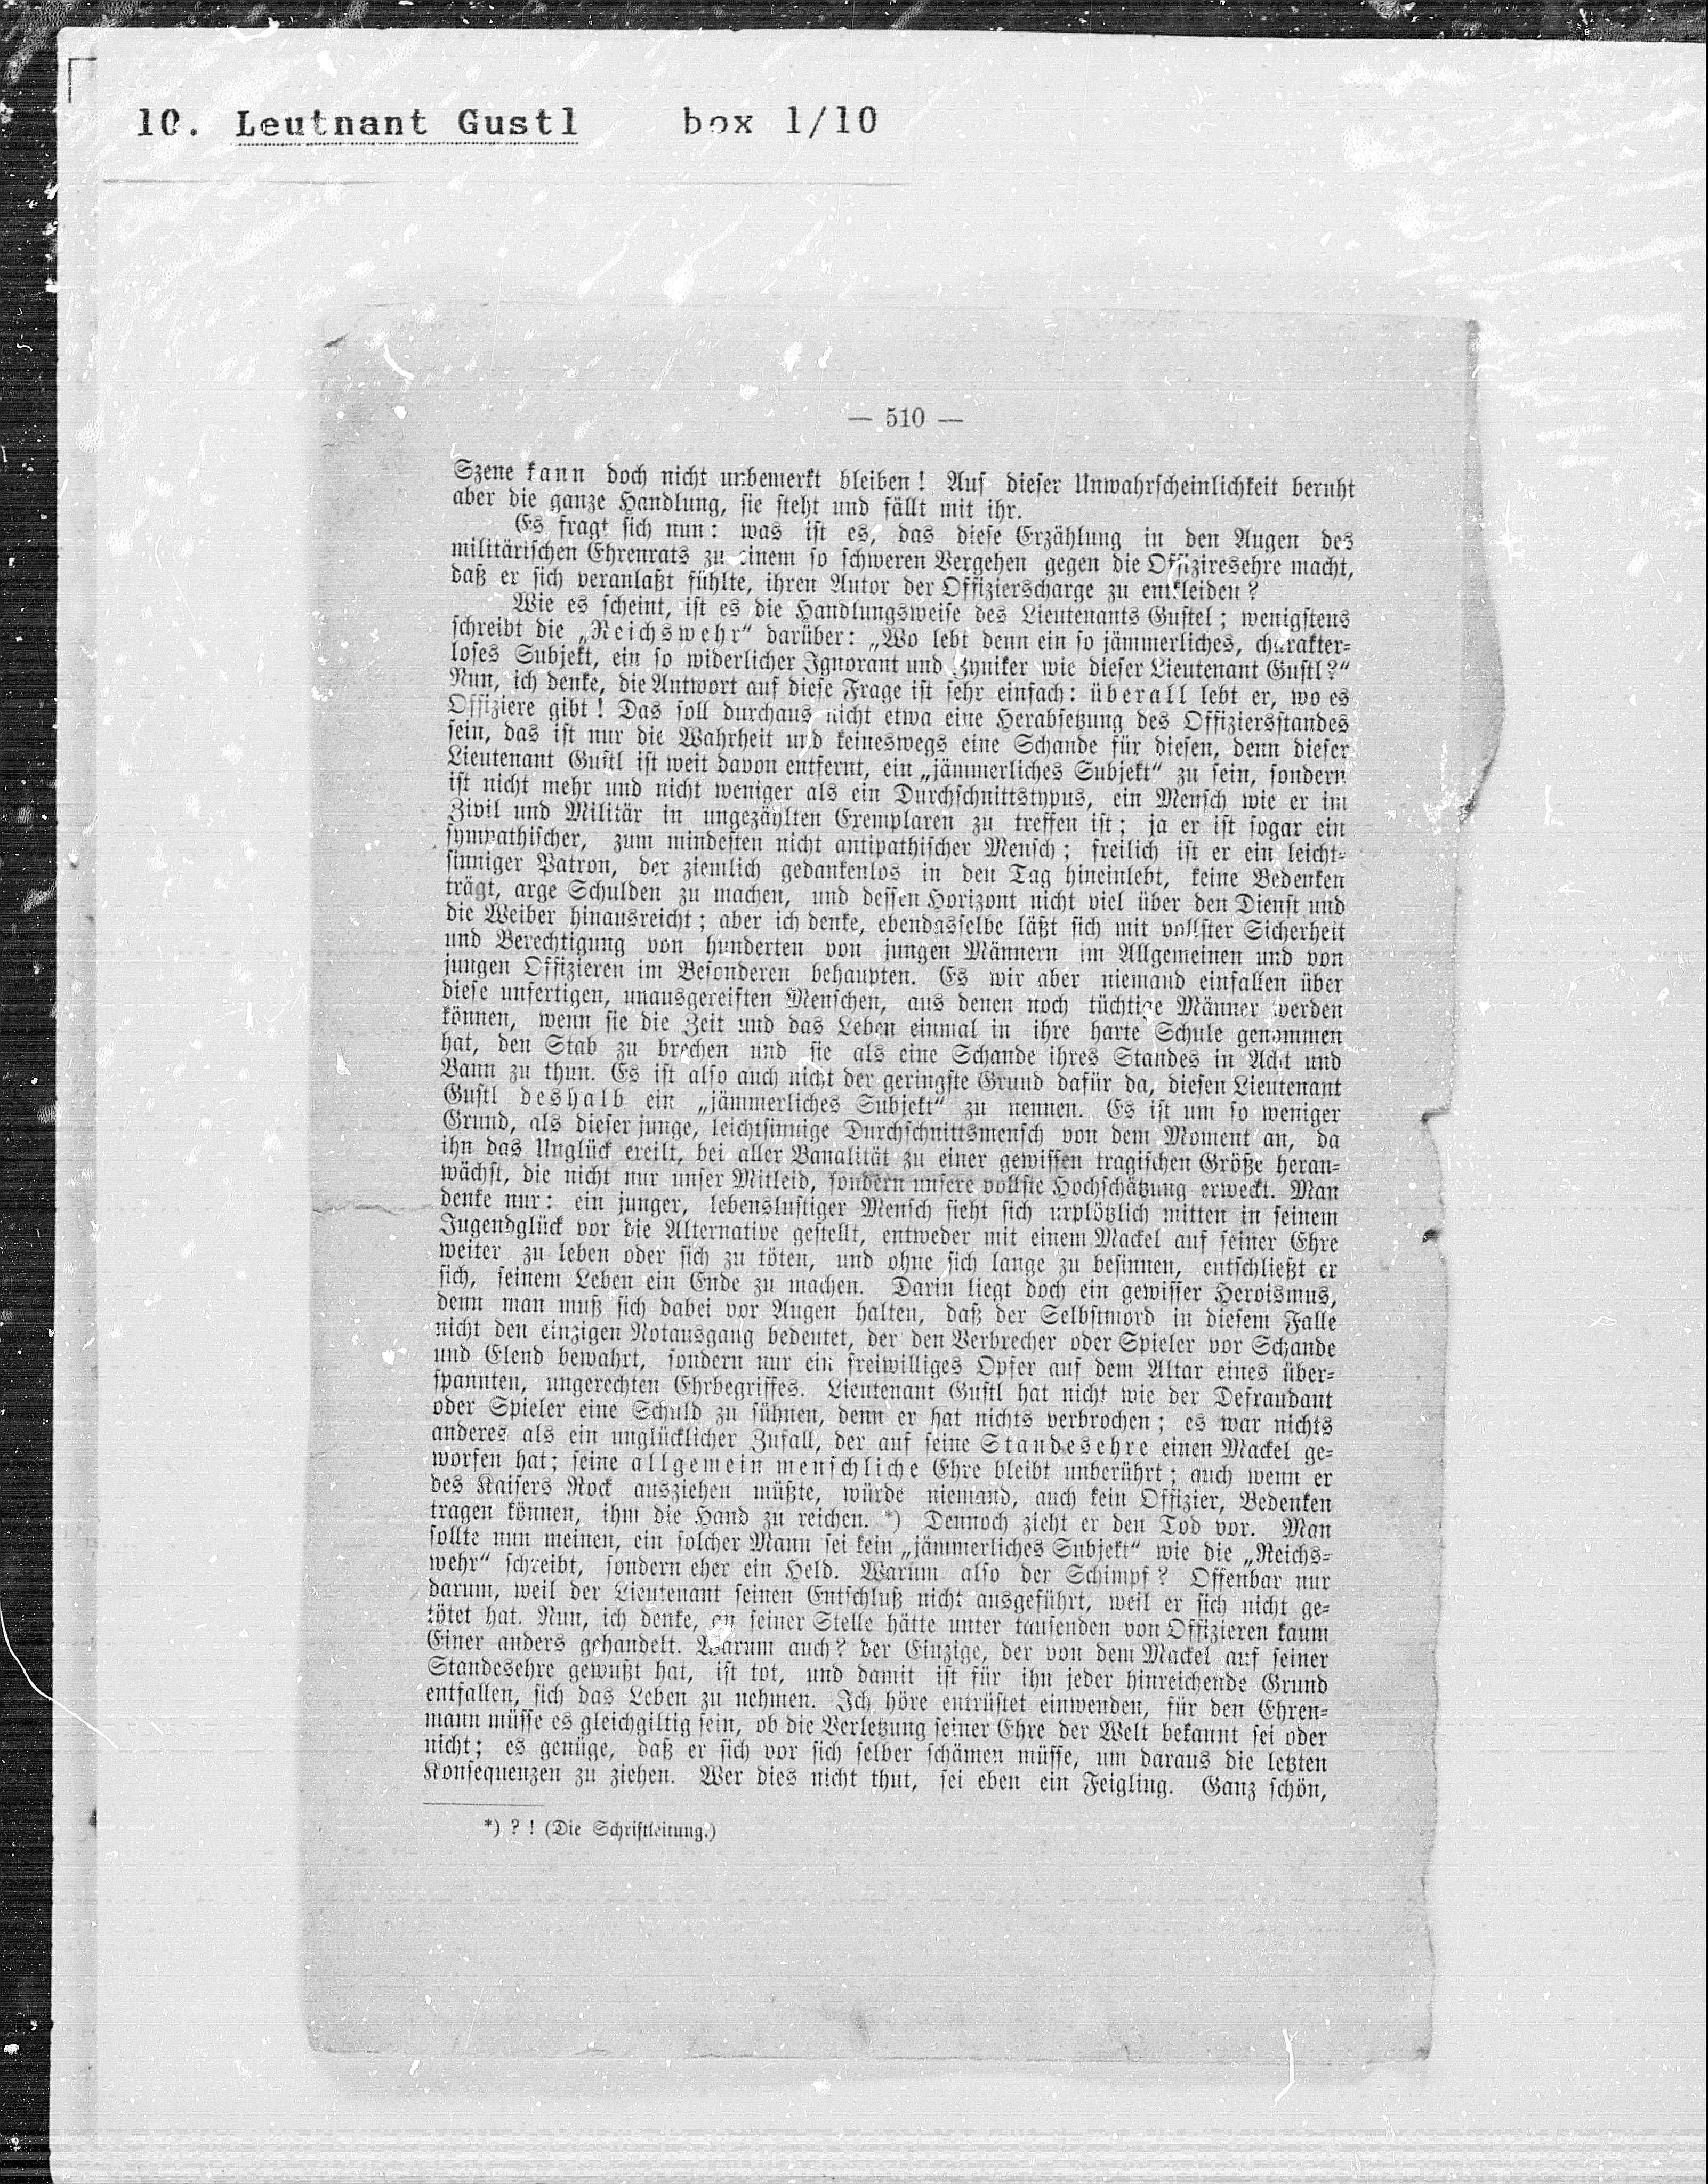 10. Leutnant Gustl box 1/10
— 510 —
Szene kann doch nicht unbemerkt bleiben! Auf dieser Unwahrscheinlichkeit beruht
aber die ganze Handlung, sie steht und fällt mit ihr.
Es fragt sich nun: was ist es, das diese Erzählung in den Augen des
militärischen Ehrenrats zu einem so schweren Vergehen gegen die Offiziresehre macht,
daß er sich veranlaßt fühlte, ihren Autor der Offizierscharge zu entkleiden?
Wie es scheint, ist es die Handlungsweise des Lieutenants Gustel; wenigstens
schreibt die „Reichswehr“ darüber: „Wo lebt denn ein so jämmerliches, charakter-
loses Subjekt, ein so widerlicher Ignorant und Zyniker wie dieser Lieutenant Gustl?“
Nun, ich denke, die Antwort auf diese Frage ist sehr einfach: überall lebt er, wo es
Offiziere gibt! Das soll durchaus nicht etwa eine Herabsetzung des Offiziersstandes
sein, das ist nur die Wahrheit und keineswegs eine Schande für diesen, denn dieser
Lieutenant Gustl ist weit davon entfernt, ein „jämmerliches Subjekt“ zu sein, sondern
ist nicht mehr und nicht weniger als ein Durchschnittstypus, ein Mensch wie er im
Zivil und Militär in ungezählten Exemplaren zu treffen ist; ja er ist sogar ein
sympathischer, zum mindesten nicht antipathischer Mensch; freilich ist er ein leicht-
sinniger Patron, der ziemlich gedankenlos in den Tag hineinlebt, keine Bedenken
trägt, arge Schulden zu machen, und dessen Horizont nicht viel über den Dienst und
die Weiber hinausreicht; aber ich denke, ebendasselbe läßt sich mit vollster Sicherheit
und Berechtigung von hunderten von jungen Männern im Allgemeinen und von
jungen Offizieren im Besonderen behaupten. Es wir aber niemand einfallen über
diese unfertigen, unausgereiften Menschen, aus denen noch tüchtige Männer werden
können, wenn sie die Zeit und das Leben einmal in ihre harte Schule genommen
hat, den Stab zu brechen und sie als eine Schande ihres Standes in Acht und
Bann zu thun. Es ist also auch nicht der geringste Grund dafür da, diesen Lieutenant
Gustl deshalb ein „jämmerliches Subjekt“ zu nennen. Es ist um so weniger
Grund, als dieser junge, leichtsinnige Durchschnittsmensch von dem Moment an, da
ihn das Unglück ereilt, bei aller Banalität zu einer gewissen tragischen Größe heran-
wächst, die nicht nur unser Mitleid, sondern unsere vollste Hochschätzung erweckt. Man
denke nur: ein junger, lebenslustiger Mensch sieht sich urplötzlich mitten in seinem
Jugendglück vor die Alternative gestellt, entweder mit einem Mackel auf seiner Ehre
weiter zu leben oder sich zu töten, und ohne sich lange zu besinnen, entschließt er
sich, seinem Leben ein Ende zu machen. Darin liegt doch ein gewisser Heroismus,
denn man muß sich dabei vor Augen halten, daß der Selbstmord in diesem Falle
nicht den einzigen Notausgang bedeutet, der den Verbrecher oder Spieler vor Schande
und Elend bewahrt, sondern nur ein freiwilliges Opfer auf dem Altar eines über-
spannten, ungerechten Ehrbegriffes. Lieutenant Gustl hat nicht wie der Defraudant
oder Spieler eine Schuld zu sühnen, denn er hat nichts verbrochen; es war nichts
anderes als ein unglücklicher Zufall, der auf seine Standesehre einen Mackel ge-
worfen hat; seine allgemein menschliche Ehre bleibt unberührt; auch wenn er
des Kaisers Rock ausziehen müßte, würde niemand, auch kein Offizier, Bedenken
tragen können, ihm die Hand zu reichen. *) Dennoch zieht er den Tod vor. Man
sollte nun meinen, ein solcher Mann sei kein „jämmerliches Subjekt“ wie die „Reichs-
wehr“ schreibt, sondern eher ein Held. Warum also der Schimpf? Offenbar nur
darum, weil der Lieutenant seinen Entschluß nicht ausgeführt, weil er sich nicht ge-
tötet hat. Nun, ich denke, an seiner Stelle hätte unter tausenden von Offizieren kaum
Einer anders gehandelt. Warum auch? der Einzige, der von dem Mackel auf seiner
Standesehre gewußt hat, ist tot, und damit ist für ihn jeder hinreichende Grund
entfallen, sich das Leben zu nehmen. Ich höre entrüstet einwenden, für den Ehren-
mann müsse es gleichgiltig sein, ob die Verletzung seiner Ehre der Welt bekannt sei oder
nicht; es genüge, daß er sich vor sich selber schämen müsse, um daraus die letzten
Konsequenzen zu ziehen. Wer dies nicht thut, sei eben ein Feigling. Ganz schön,
*) ? ! (Die Schriftleitung.)